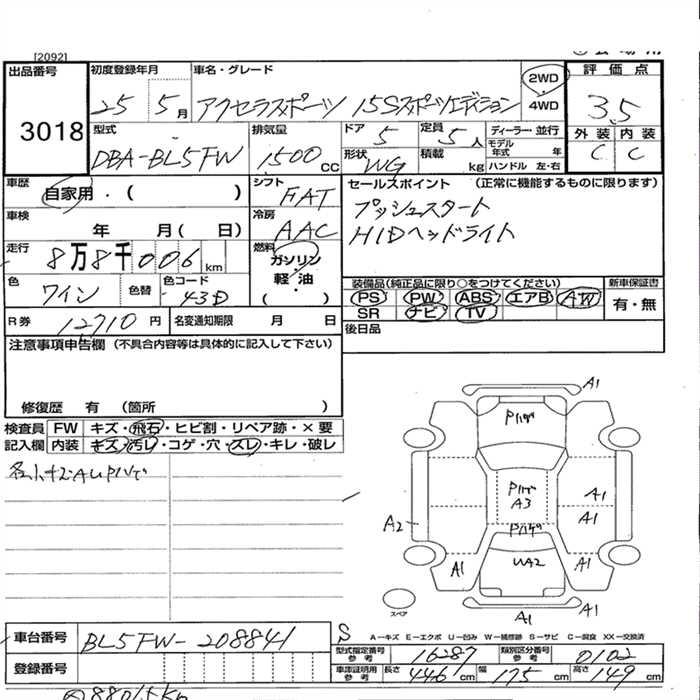 [2092]
出品番号 3018
初度登録年月 25 5月
車名・グレード アクセラスポーツ 15Sスポーツエディション
2WD
4WD
評価点 3.5
外装 内装
C C
型式 DBA-BL5FW
排気量 1500cc
ドア 5
定員 5人
ディーラー・並行
モデル年式 年
形状 WG
積載 kg
ハンドル 左・右
車歴 自家用・( )
シフト FAT
セールスポイント (正常に機能するものに限ります)
プッシュスタート
HIDヘッドライト
車検 年 月( 日)
冷房 AAC
走行 8万8千006km
燃料 ガソリン
軽・油
( )
色 ワイン
色替
色コード 43D
装備品(純正品に限り○をつけてください)
新車保証書
PS PW ABS エアB AW
有・無
SR ナビ TV
R券 12710円
名変通知期限 月 日
後日品
注意事項申告欄 (不具合内容等は具体的に記入して下さい)
修復歴 有 (箇所 )
検査員 FW キズ・飛石・ヒビ割・リペア跡・×要
記入欄 内装 キズ・汚レ・コゲ・穴・スレ・キレ・破レ
A1
Pハゲ
Pハゲ
A3
A1
A1
A2
Pハゲ
A1
UA2
A1
A1
A1
スペア
S
A…キズ E…エクボ U…凹み W…補修跡 S…サビ C…腐食 XX…交換済
車台番号 BL5FW-208841
登録番号
型式指定番号 参考 16287
類別区分番号 参考 0102
車庫証明用 参考 長さ 446cm 幅 175cm 高さ 149cm